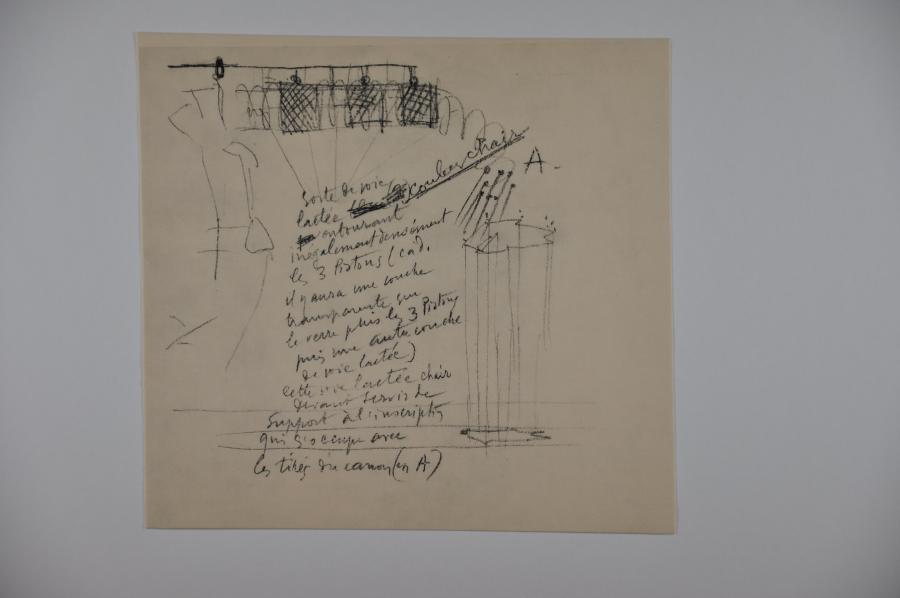 Sorte de voie
lactée couleur chair
entourant
inégalement densément
les 3 Pistons (càd.
il y aura une couche
transparente sur
le verre puis les 3 Pistons
puis une autre couche
de voie lactée)
cette voie lactée chair
devant servir de
Support à l'inscription
qui s'occupe avec
les tirés du canon (en A)
A.